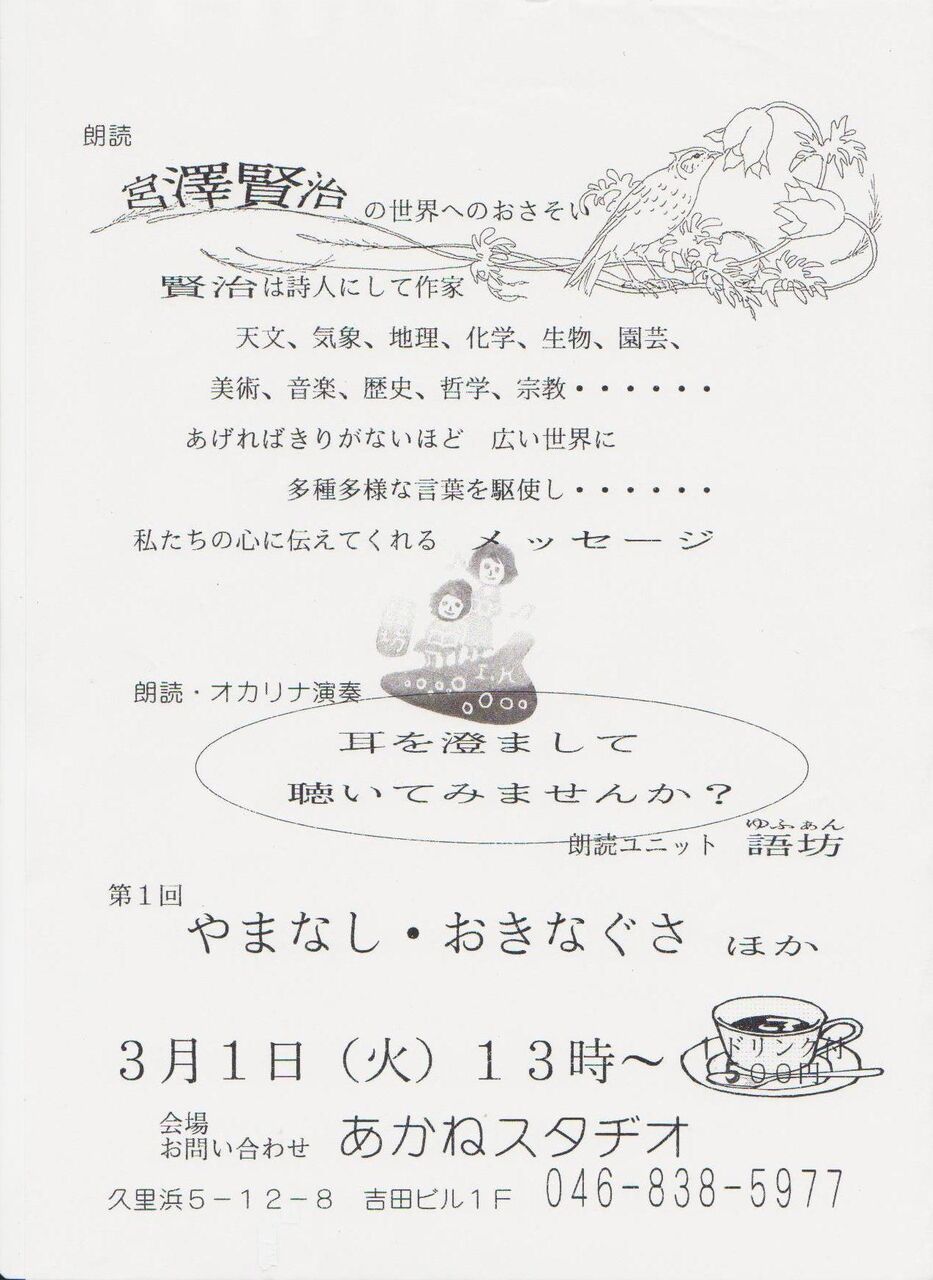 朗読
宮澤賢治の世界へのおさそい
賢治は詩人にして作家
天文、気象、地理、化学、生物、園芸、
美術、音楽、歴史、哲学、宗教・・・・・・
あげればきりがないほど　広い世界に
多種多様な言葉を駆使し・・・・・・
私たちの心に伝えてくれる　メッセージ
I.M
朗読・オカリナ演奏
耳を澄まして
聴いてみませんか？
ゆふぁん
朗読ユニット　語坊
第１回
やまなし・おきなぐさ　ほか
３月１日（火）１３時～
１ドリンク付
５００円
会場
お問い合わせ　あかねスタヂオ
久里浜５－１２－８　吉田ビル１F　046-838-5977